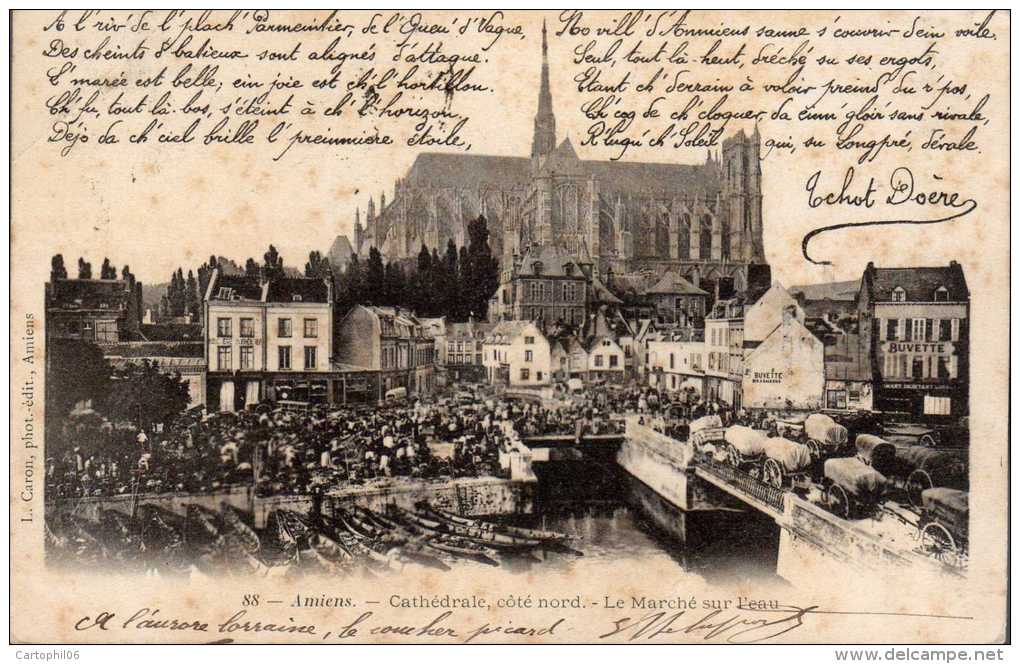 A l'riv' de l'plach' Parmeintier, de l'Queu' d'Vaque,
Des cheints d'batieux sont alignés d'attaque.
L'marée est belle; ein joie est ch'l'hortillon.
Ch'lu, tout là-bos, s'éteint à ch'l'horizon,
Déjo da ch'ciel brille l'preinmière étoile,
No vill' d'Anmiens sanne s'couvrir d'ein voile.
Seul, tout là-heut, dréché su ses ergots,
Etant ch'derrain à valoir preind' du r'pos,
Ch'coq de ch'cloquer, da einn' gloir' sans rivale,
R'luqu' ch'Soleil qui, su Longpré, dévale.
Tchot Doère
BUVETTE
BUVETTE
L. Caron, phot.-édit., Amiens
88 - Amiens. - Cathédrale, côté nord. - Le Marché sur l'eau
A l'aurore lorraine, le coucher picard
Cartophil06
www.delcampe.net